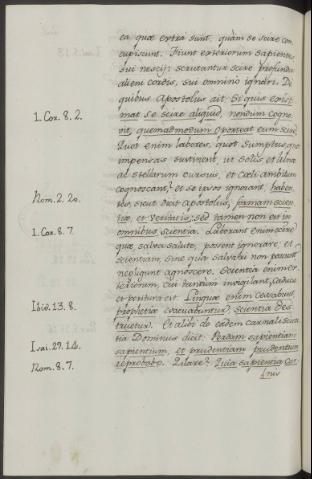 ea quæ extra sunt, quàm se scire con
cupiscunt. Fiunt exteriorum sapientes
sui nescij: scrutantur scire profunda
alieni cordis, sui omnino ignari. De
quibus Apostolus ait. Si quis existi
1. Cor. 8. 2.
mat se scire aliquid, nondum cogno
vit, quemadmodum oporteat eum scire.
Quot enim labores, quot sumptus, quot
impensas sustinent, ut solis et lunæ
ac stellarum cursus, et Cœli ambitum
cognoscant, et se ipsos ignorant, haben
Rom. 2. 20.
tes, sicut dicit Apostolus, formam scien
tiæ, et veritatis; sed tamen non est in
1. Cor. 8. 7.
omnibus scientia. Laborant enim scire
quæ, salva salute, possent ignorare, et
scientiam, sine qua salvari non possunt
negligunt agnoscere. Scientia enim ex
teriorum, cui tantum invigilant, caduca
et peritura est. Linguæ enim cessabunt,
Ibid. 13. 8.
prophetia evacuabuntur, scientia des
truetur. Et alibi de eadem carnali scien
tia Dominus dicit: Perdam sapientiam
Isai. 29. 14.
sapientium, et prudentiam prudentium
Rom. 8. 7.
reprobabo. Quare? Quia sapientia car